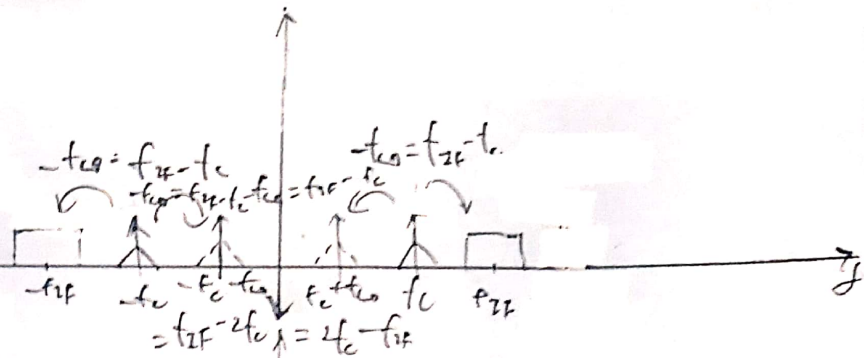 -f_{LO} = f_{IF} - f_c
-f_{LO} = f_{IF} - f_c
-f_{LO} = f_{IF} - f_c
-f_{LO} = f_{IF} - f_c
-f_{IF} -f_c -f_c - f_{LO} f_c + f_{LO} f_c f_{IF} f
= f_{IF} - 2f_c = 2f_c - f_{IF}